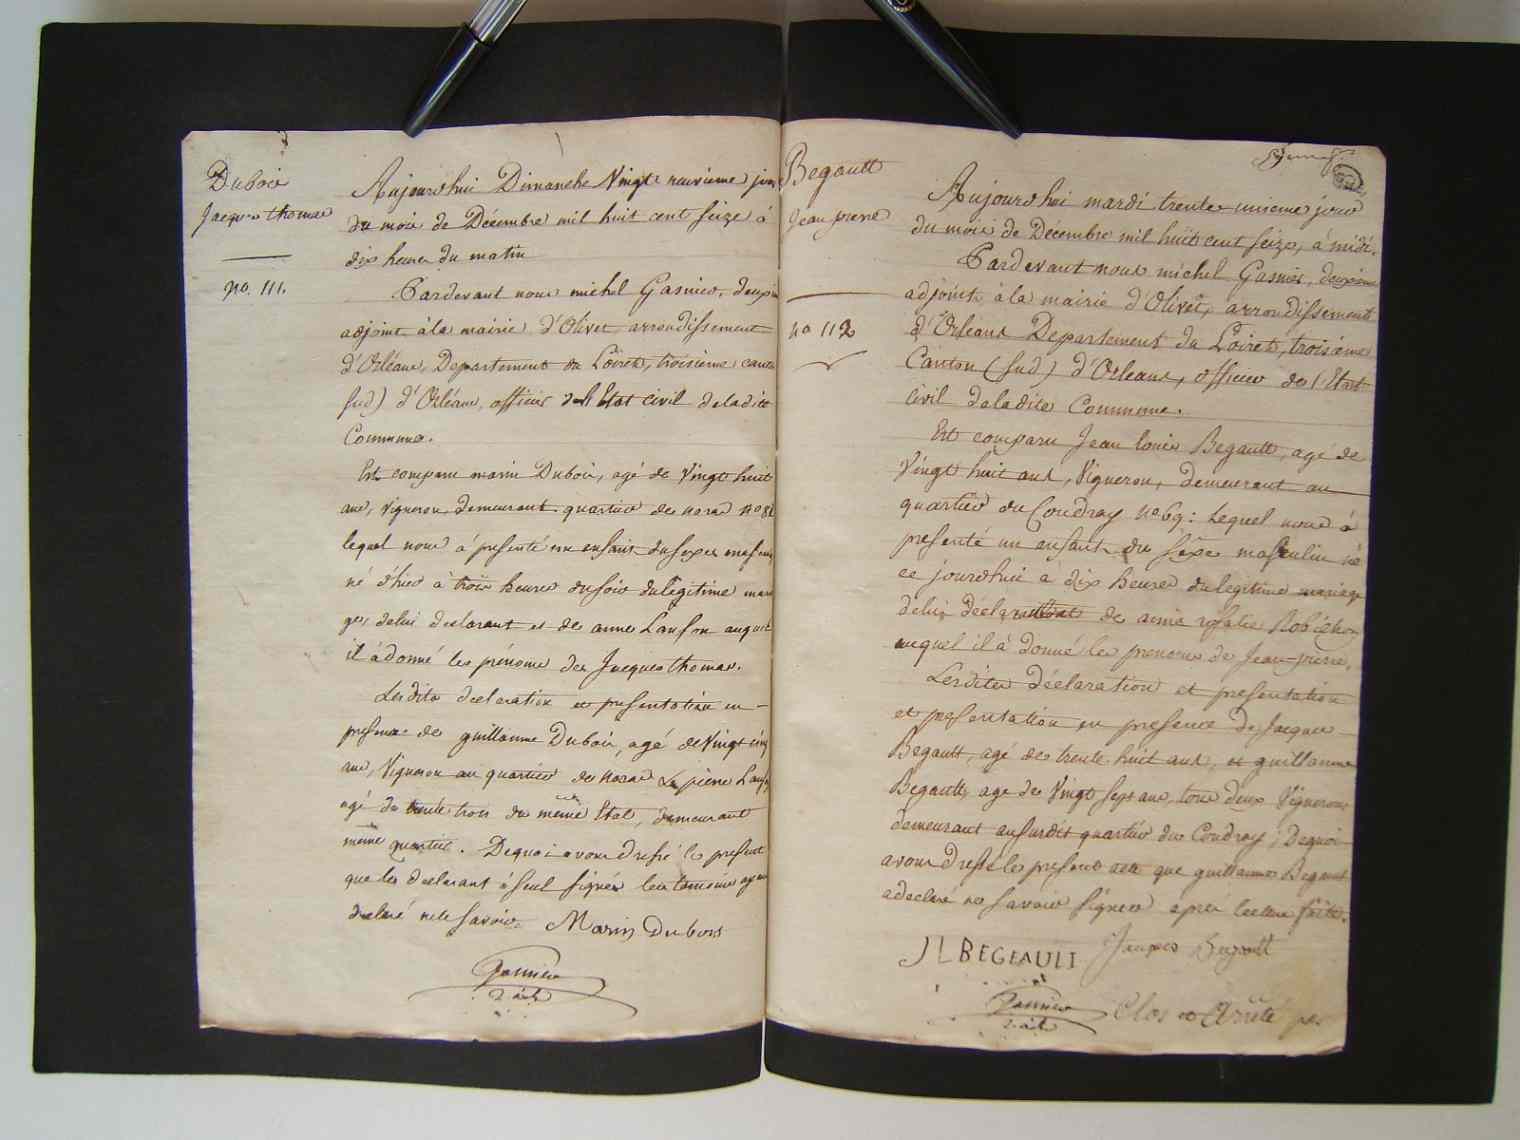 Dubois
Jacques thomas
no. 111.
Aujourdhui Dimanche Vingt neuvieme jour
du mois de Décembre mil huit cent Seize à
dix heures du matin
Pardevant nous michel Gasnier, deuxie
adjoint à la mairie d'Olivet arrondissement
d'Orléans, Departement du Loiret, troisieme canton
Sud) d'Orléans, officier de l'Etat civil de ladite
Commune.
Est comparu marin Dubois, agé de Vingt huit
ans, vigneron, demeurant quartier de
lequel nous à presenté un enfant du sexe masculin
né d'hier à trois heures du soir du légitime maria
ge, de lui declarant et de anne Lanson auquel
il à donné les prénoms de Jacques thomas.
Lesdites declaration et presentation en
presence de guillaume Dubois, agé de Vingt cinq
ans, Vigneron au quartier de pierre
agé de trente trois du même Etat, demeurant
même quartier. Dequoi avons dressé le present
que le declarant à seul signé les temoins ayant
declaré ne le savoir. Marin Dubois
Gasnier
2. adt
Begault
Jean pierre
no 112
Aujourdhui mardi trente unieme jour
du mois de Décembre mil huit cent seize, à midi.
Pardevant nous michel Gasnier, deuxieme
adjoint à la mairie d'Olivet, arrondissement
d'Orléans Departement du Loiret, troisieme
Canton (Sud) d'Orleans, officier de l'Etat
civil de ladite Commune.
Est comparu Jean Louis Begault, agé de
Vingt huit ans, Vigneron, demeurant au
quartier du Coudray no 69: Lequel nous à
presenté un enfant du sexe masculin né
ce jourdhui à dix heures du legitime mariage
de lui déclarant et de aimé rosalie Robichon
auquel il à donné les prenoms de Jean-pierre.
Lesdites déclaration et presentation
et presentation en presence de Jacques
Begault, agé de trente huit ans, et guillaume
Begault, age de Vingt sept ans, tous deux Vignerons
demeurant au susdit quartier du Coudray; Dequoi
avons dressé le present acte que guillaume Begault
a declaré ne savoir signer après lecture faite.
JLBEGEAULT Jacques Begault
Gasnier
2. adt
Clos et Arrêté par